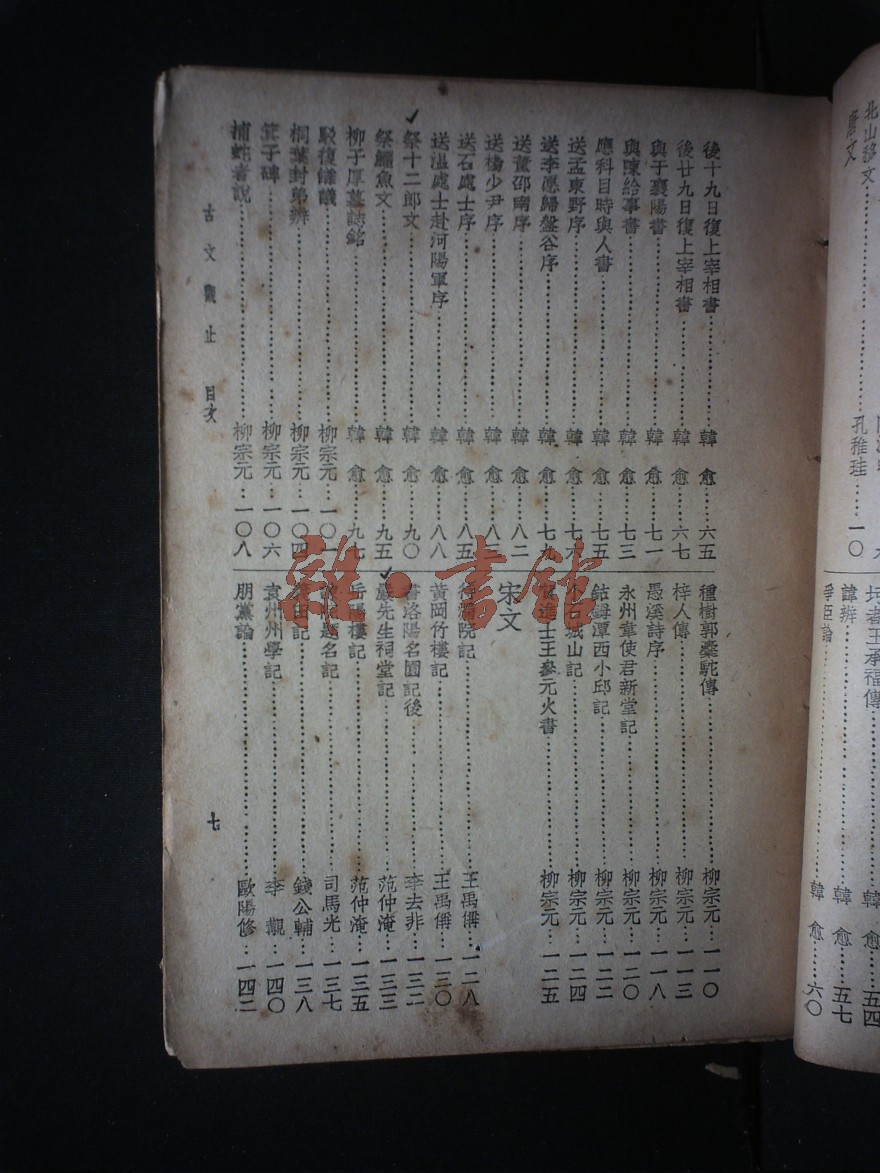 北山移文……孔稚珪……一〇
唐文
圬者王承福傳……韓　愈……五四
諱辨……韓　愈……五七
爭臣論……韓　愈……六〇
後十九日復上宰相書……韓　愈……六五
後廿九日復上宰相書……韓　愈……六七
與于襄陽書……韓　愈……七一
與陳給事書……韓　愈……七三
應科目時與人書……韓　愈……七五
送孟東野序……韓　愈……七六
送李愿歸盤谷序……韓　愈……七九
送董邵南序……韓　愈……八二
送楊少尹序……韓　愈……八三
送石處士序……韓　愈……八五
送溫處士赴河陽軍序……韓　愈……八八
祭十二郎文……韓　愈……九〇
祭鱷魚文……韓　愈……九五
柳子厚墓誌銘……韓　愈……九七
駁復讎議……柳宗元……一〇一
桐葉封弟辨……柳宗元……一〇四
箕子碑……柳宗元……一〇六
捕蛇者說……柳宗元……一〇八
種樹郭橐駝傳……柳宗元……一一〇
梓人傳……柳宗元……一一三
愚溪詩序……柳宗元……一一八
永州韋使君新堂記……柳宗元……一二〇
鈷鉧潭西小邱記……柳宗元……一二二
小石城山記……柳宗元……一二四
進士王參元火書……柳宗元……一二五
宋文
待漏院記……王禹偁……一二八
黃岡竹樓記……王禹偁……一三〇
書洛陽名園記後……李去非……一三二
嚴先生祠堂記……范仲淹……一三三
岳陽樓記……范仲淹……一三五
題名記……司馬光……一三七
田記……錢公輔……一三八
袁州州學記……李　觀……一四〇
朋黨論……歐陽修……一四二
古文觀止　目次
七
雜·書館